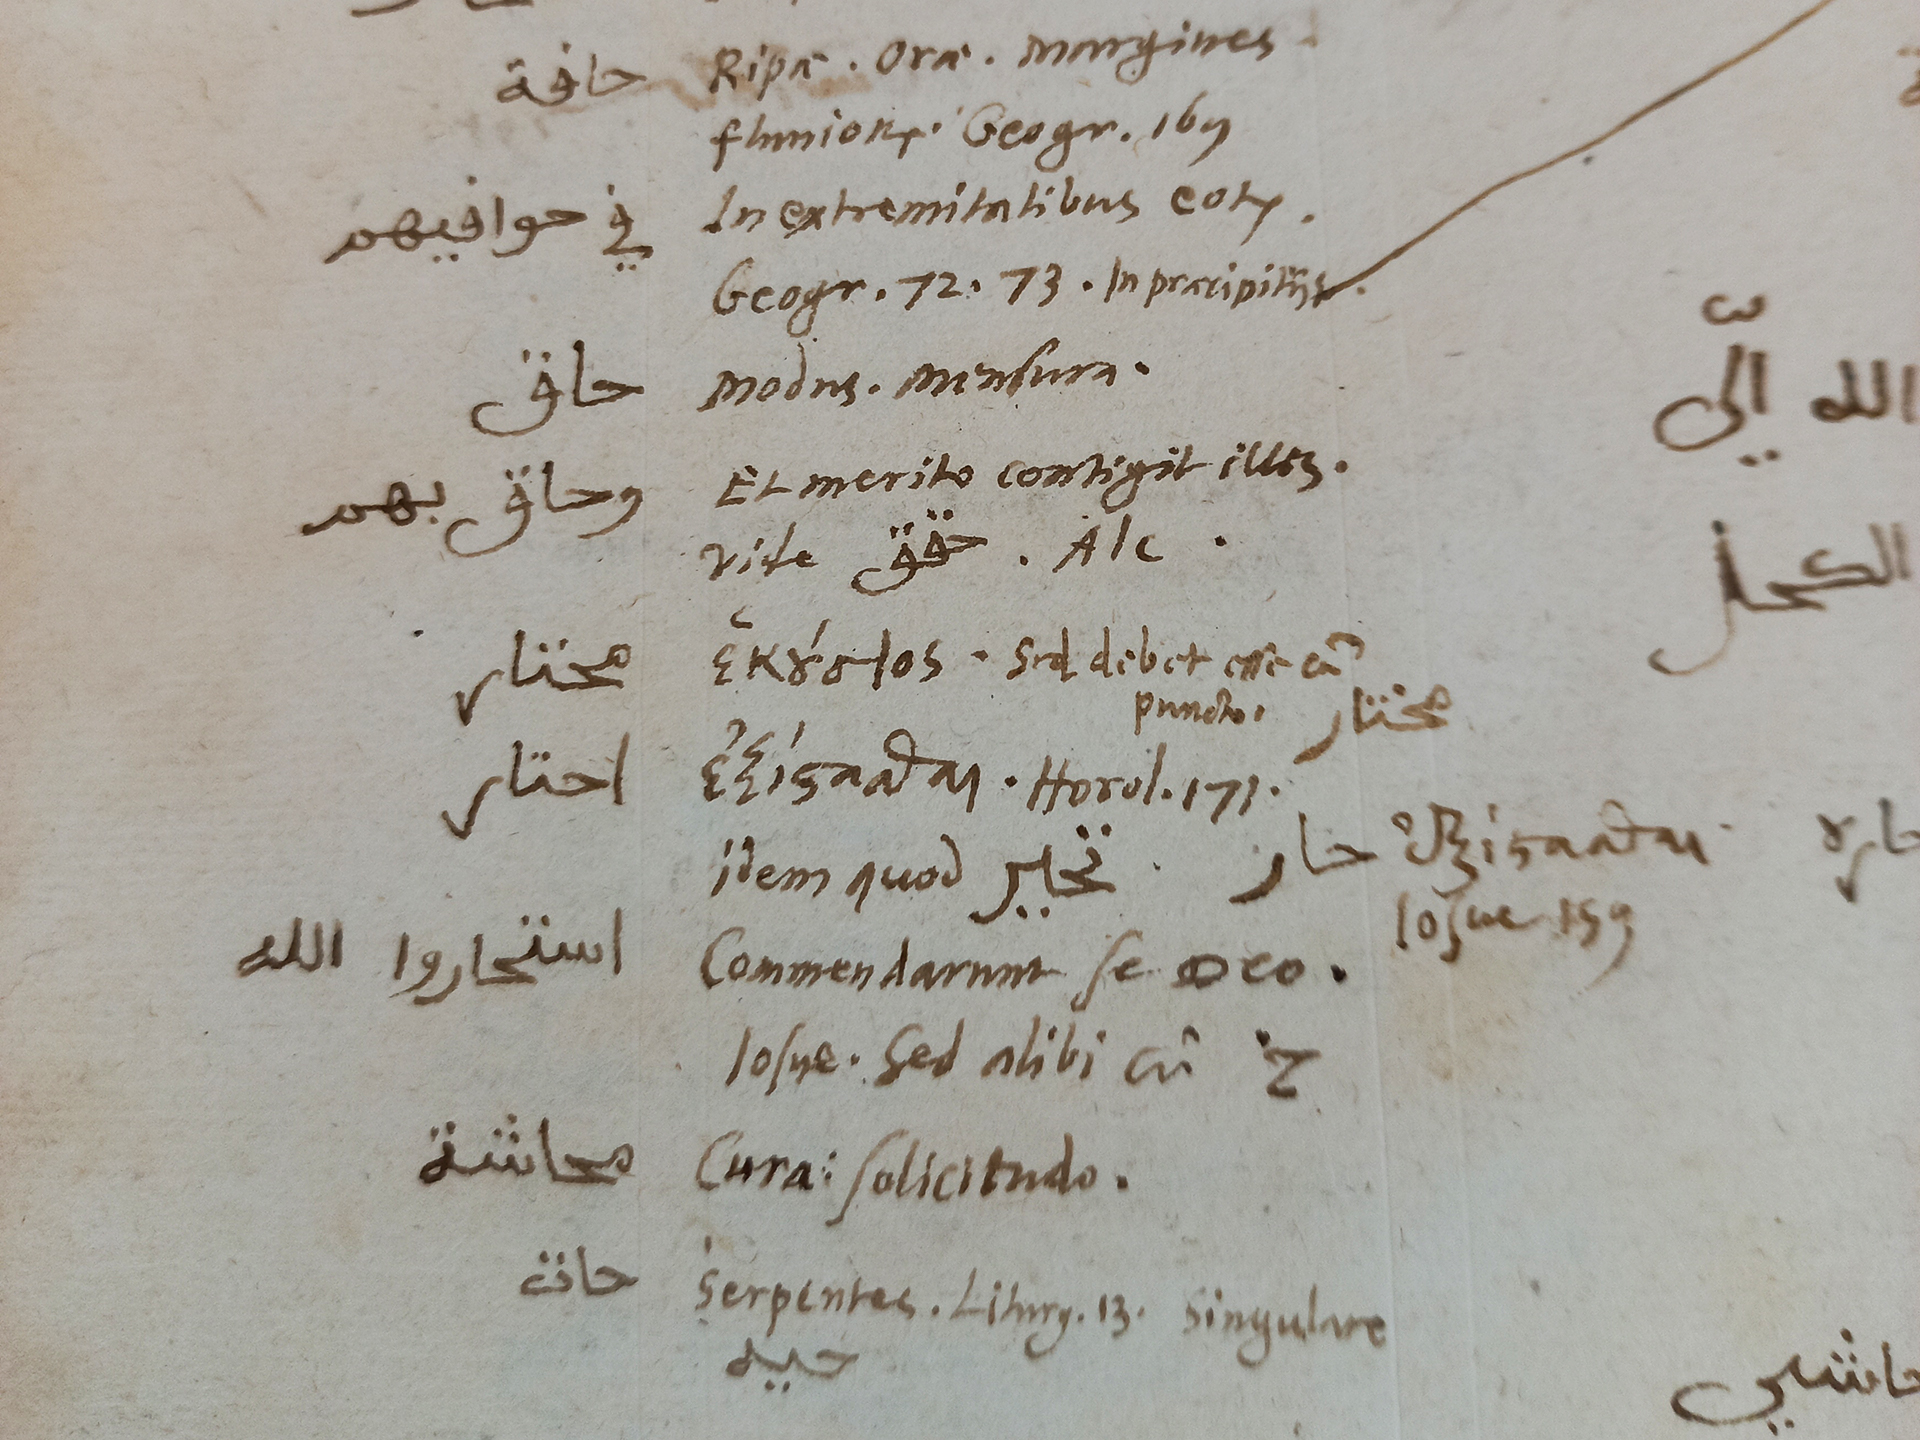 حافة Ripæ . Oræ . Margines
fluuiorꝝ. Geogr. 169
في حوافيهم In extremitatibus eorꝝ .
Geogr. 72. 73 . In præcipitijs .
حاق Modus. Mensura.
وحاق بهم Et merito contigit illis.
Vide حقق . Alc .
محتار ἑκȣ́σιος . Sed debet esse cũ
puncto. مختار
احتار ἐξίϛασθαι . Horol. 171.
idem quod تحير . حار ἐξίϛασθαι
Iosue 159
استحاروا الله Commendarunt se Deo .
Iosue. Sed alibi cũ خ
محاشة Cura: solicitudo .
حات Serpentes . Liturg. 13. Singulare
حيه
الله اليّ
الكحل
حاشي